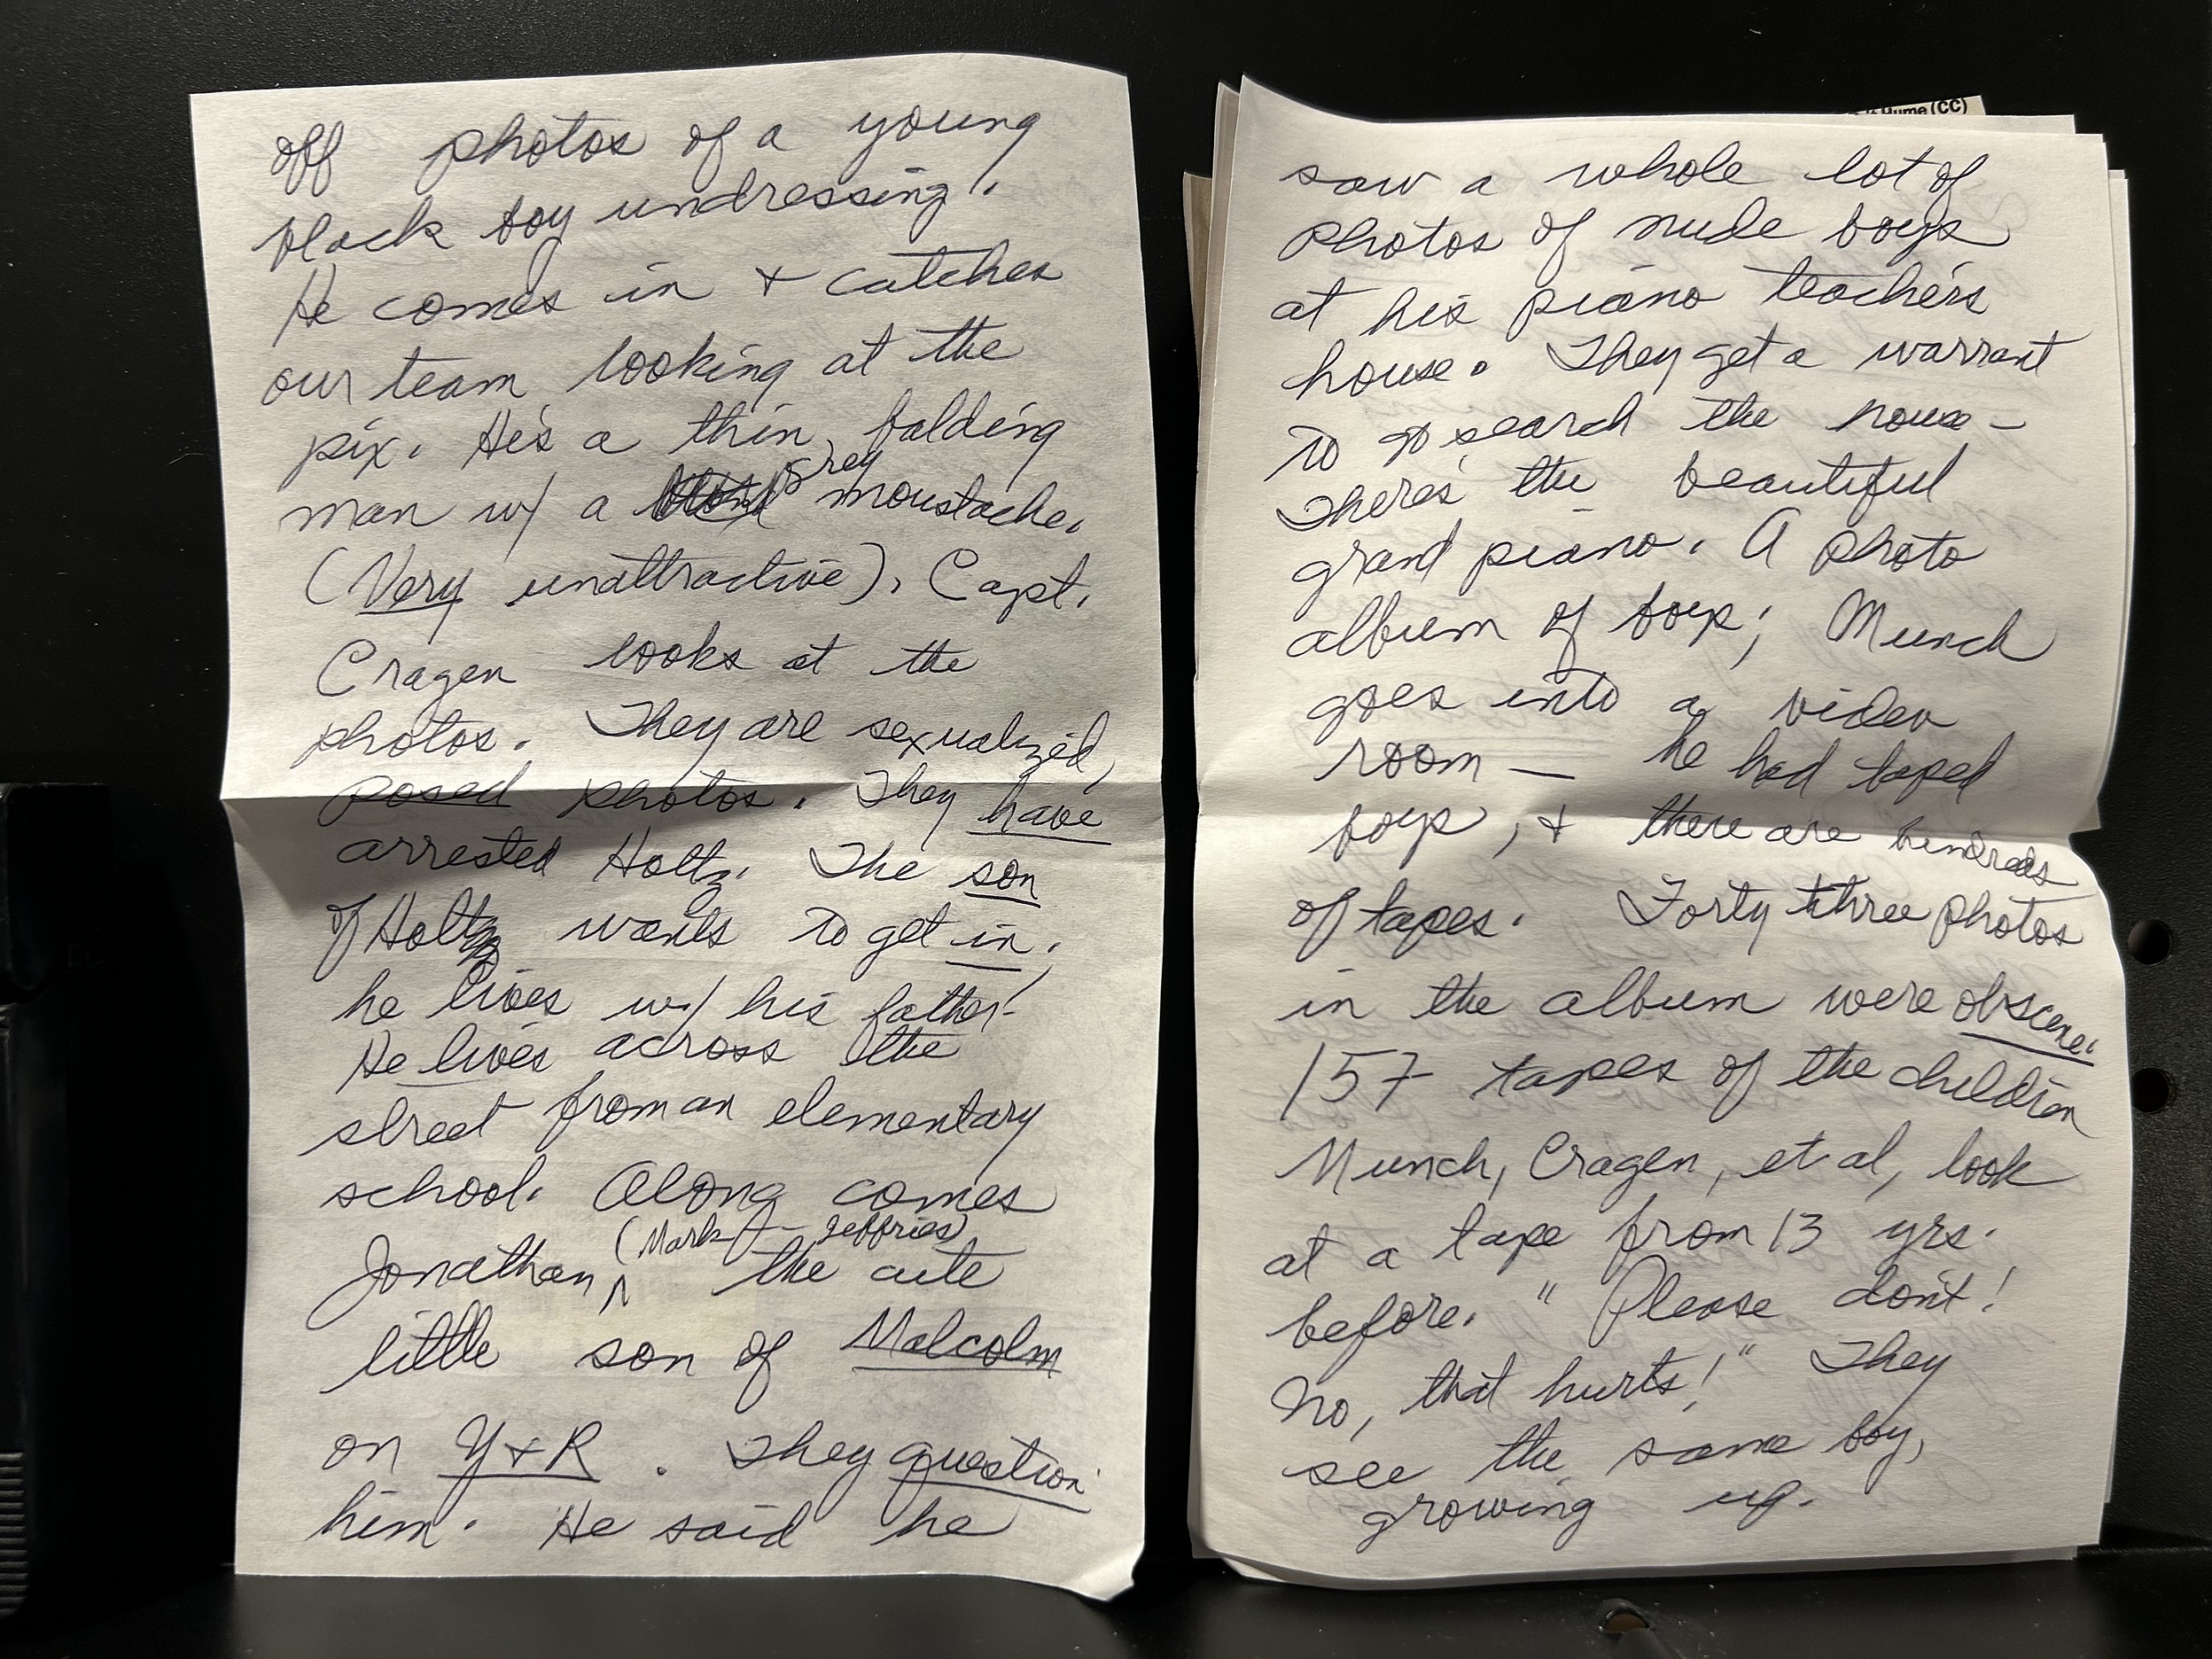 off photos of a young
black boy undressing.
He comes in + catches
our team looking at the
pix. He's a thin, balding
man w/ a grey moustache.
(Very unattractive). Capt.
Cragen looks at the
photos. They are sexualized,
posed photos. They have
arrested Holtz. The son
of Holtz wants to get in,
he lives w/ his father.
He lives across the
street from an elementary
school. Along comes
Jonathan (Mark Jeffries) the cute
little son of Malcolm
on Y+R. They question
him. He said he
Hume (CC)
saw a whole lot of
photos of nude boys
at his piano teacher's
house. They get a warrant
to go search the house –
There's the beautiful
grand piano. A photo
album of boys; Munch
goes into a video
room — he had taped
boys, + there are hundreds
of tapes. Forty three photos
in the album were obscene.
157 tapes of the children
Munch, Cragen, et al, look
at a tape from 13 yrs.
before. "Please don't!
No, that hurts!" They
see the same boy,
growing up.